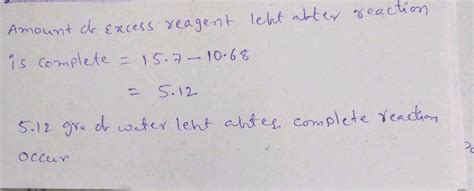 Amount of excess reagent left after reaction
is complete = 15.7 - 10.68
= 5.12
5.12 gm of water left after complete reaction
occur